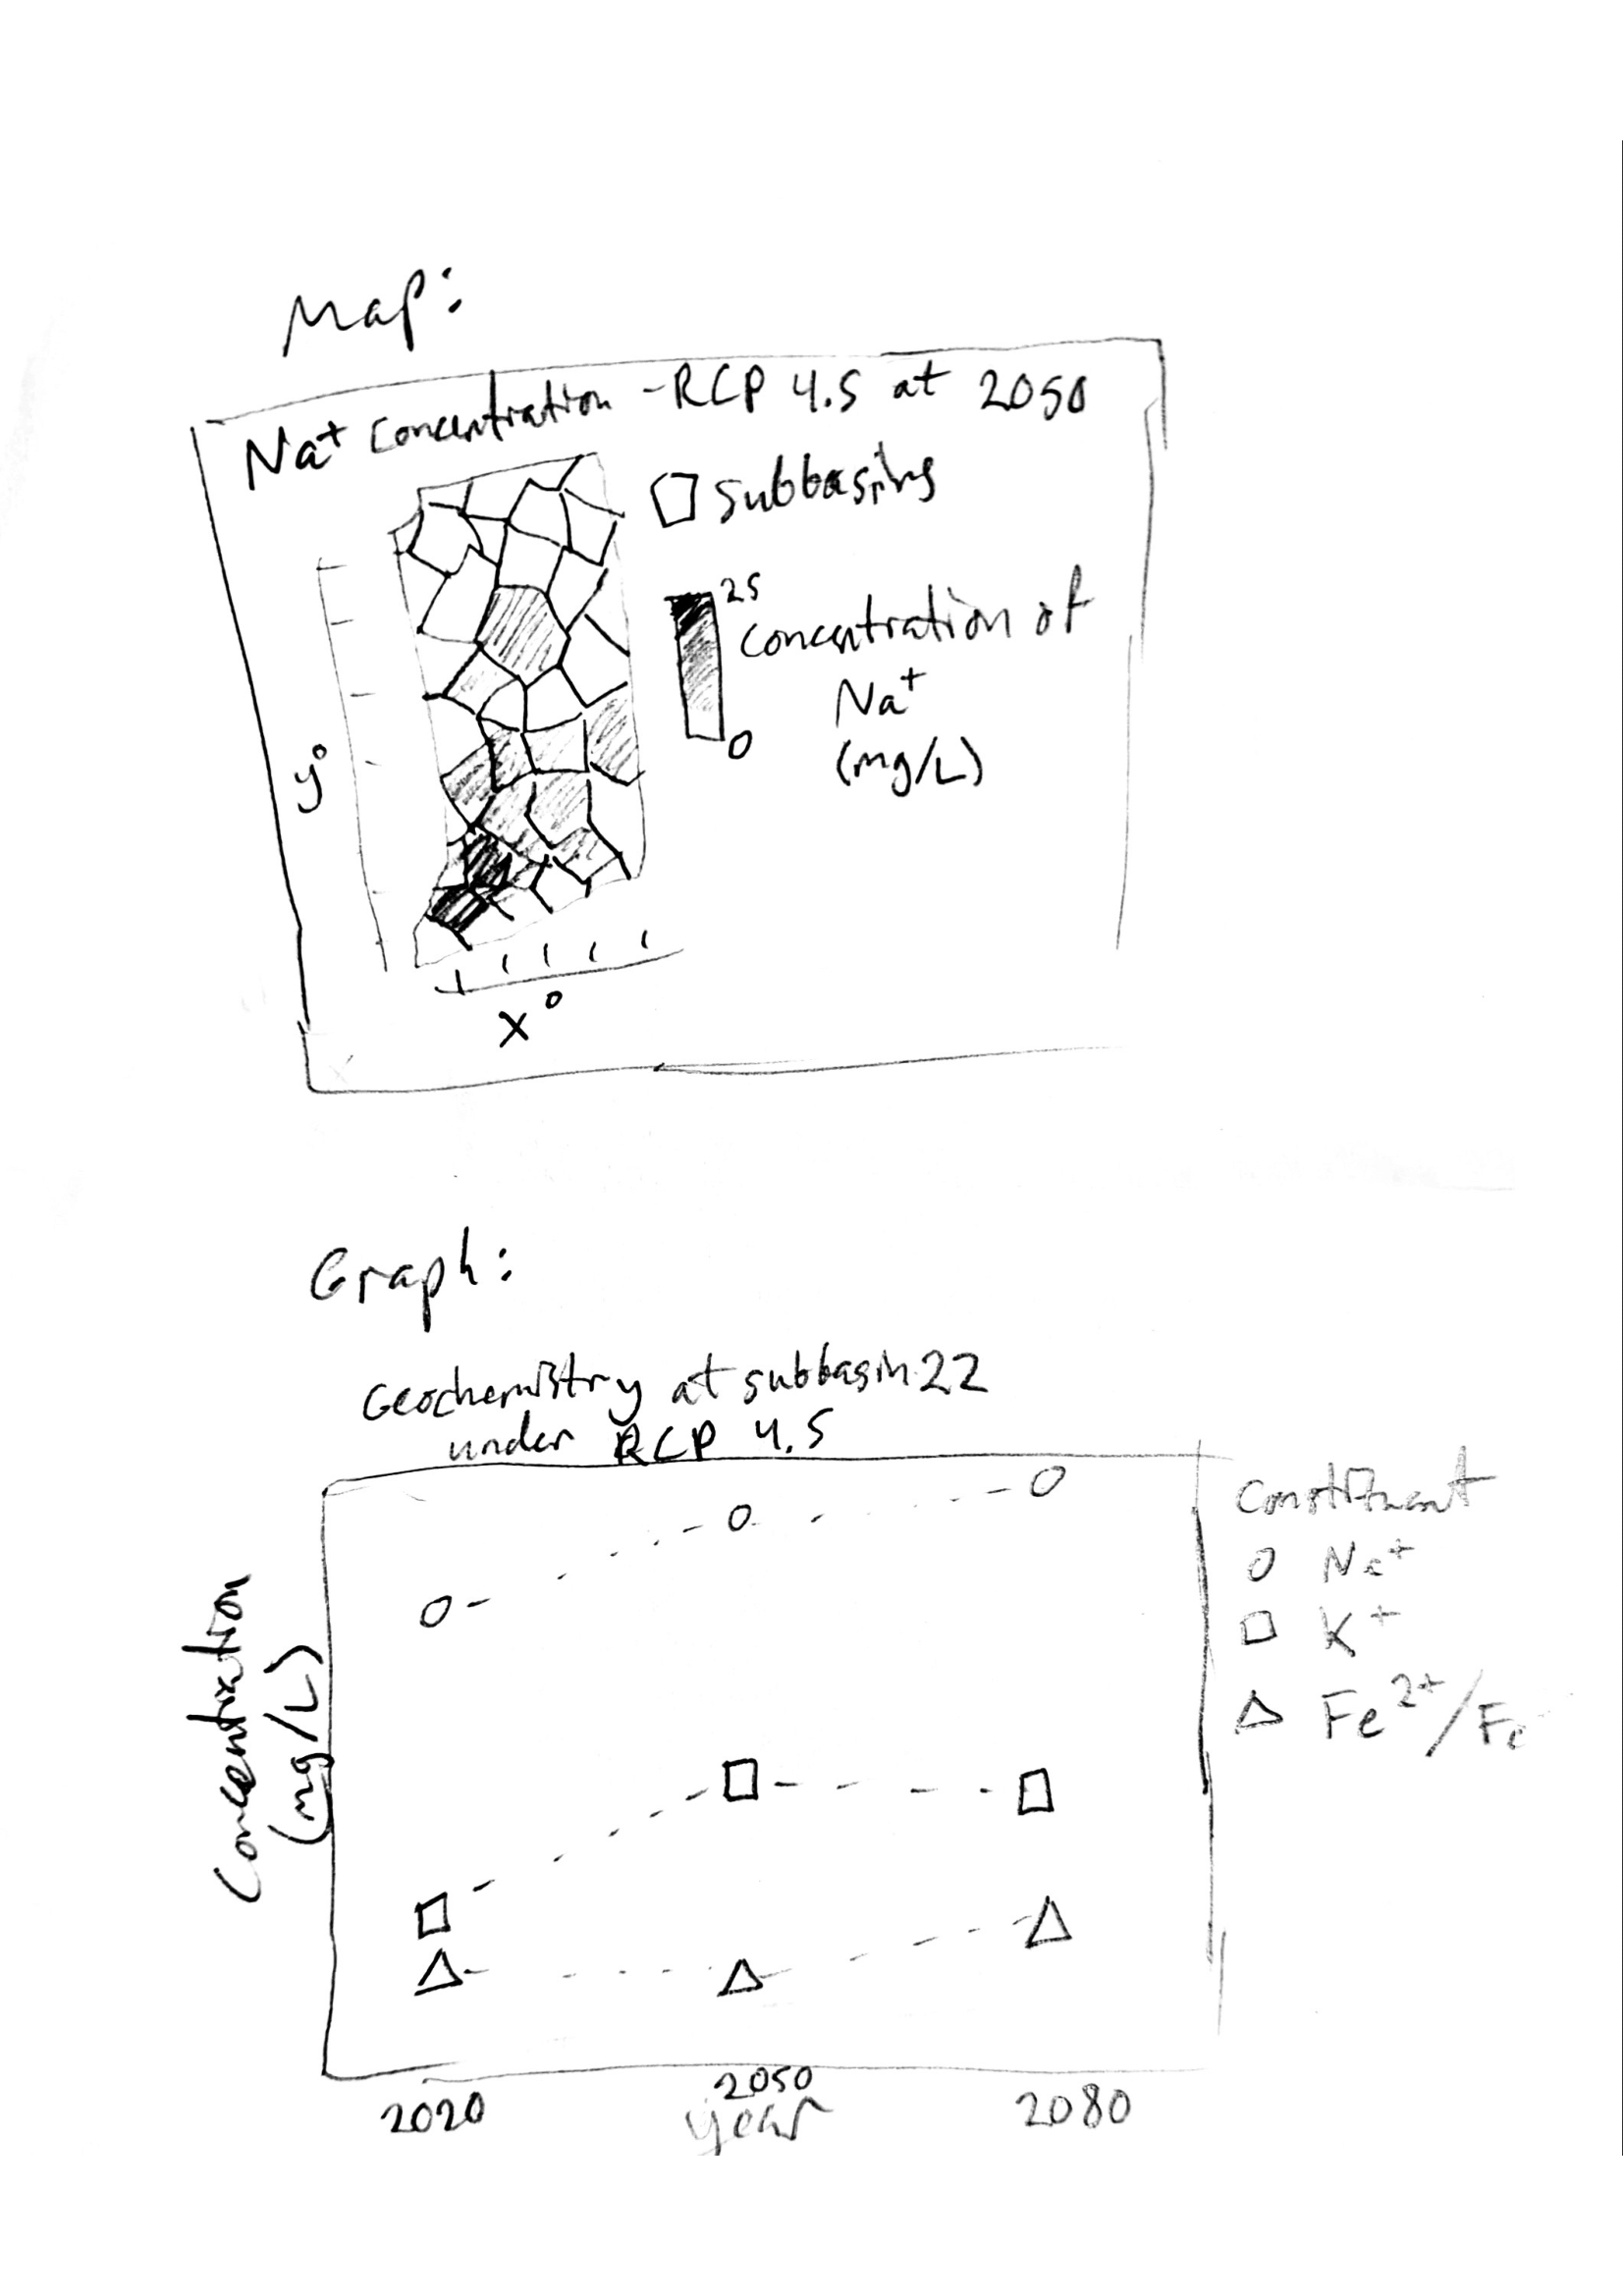 Map:
Na⁺ Concentration - RCP 4.5 at 2050
subbasins
25
Concentration of
Na⁺
(mg/L)
0
y°
x°
Graph:
Geochemistry at subbasin 22
under RCP 4.5
Concentration
(mg/L)
Constituent
Na⁺
K⁺
Fe²⁺/Fe
2020
2050
2080
year